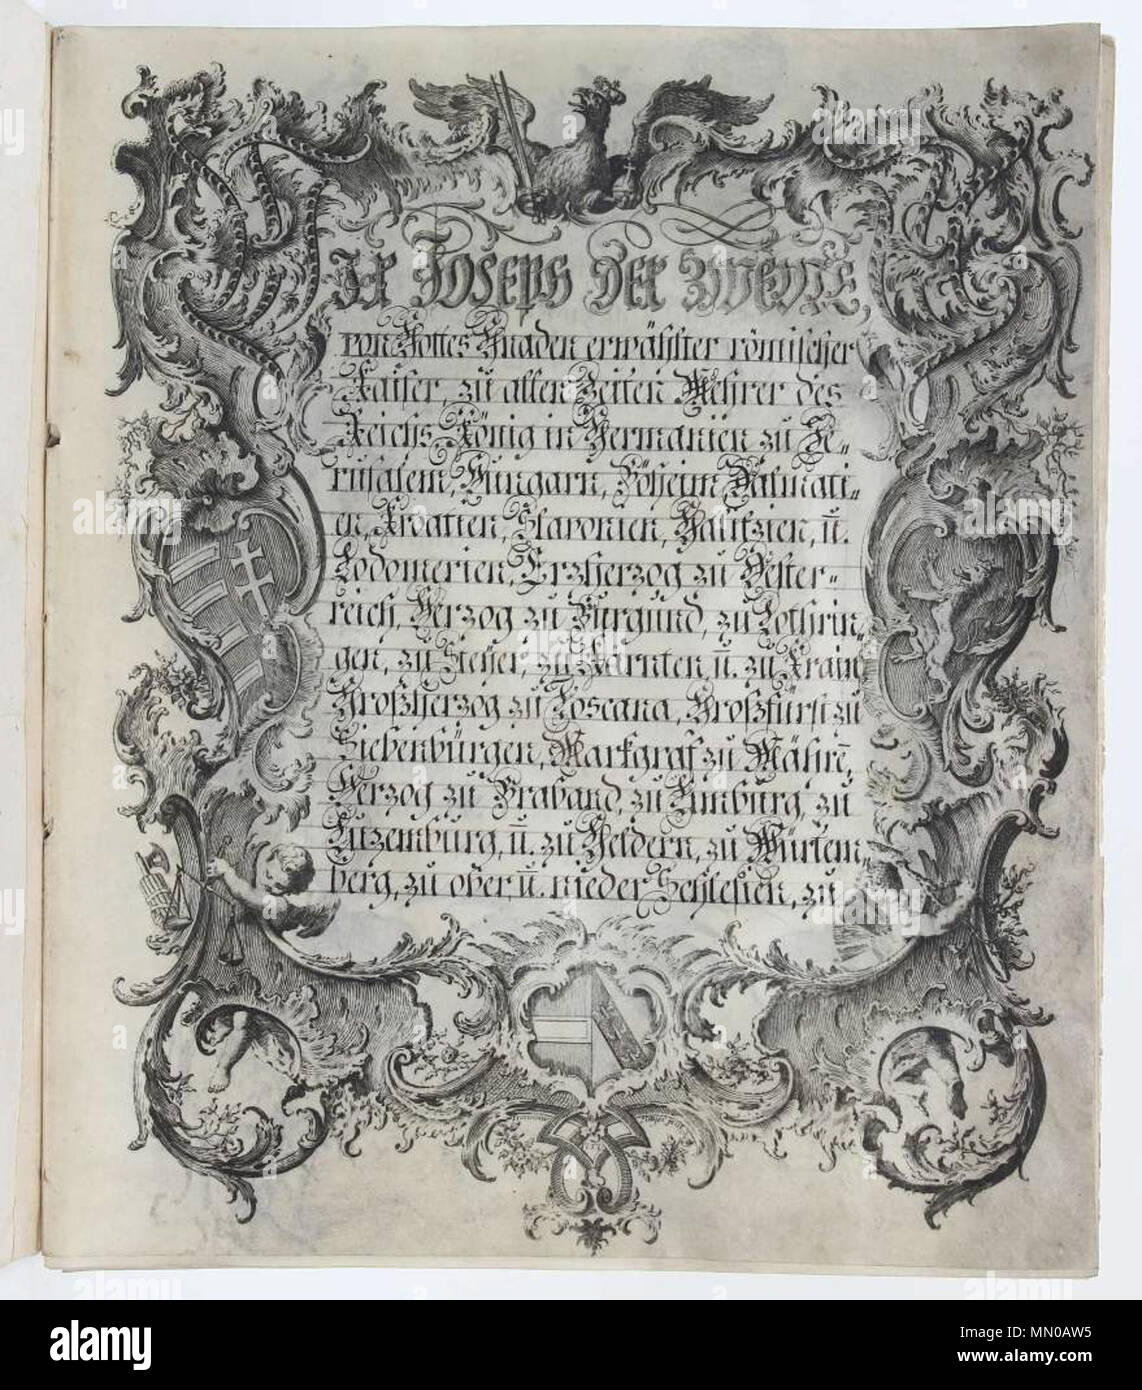 Wir Joseph der Zweyte,
von Gottes Gnaden erwählter römischer
Kaiser, zu allen Zeiten Mehrer des
Reichs, König in Germanien zu Je-
rusalem, Hungarn, Böheim Dalmati-
en, Kroatien, Slavonien, Galitzien, u.
Lodomerien, Erzherzog zu Oester-
reich, Herzog zu Burgund, zu Lothrin-
gen, zu Steyer, zu Kärnten, u. zu Krain
Großherzog zu Toscana, Großfürst zu
Siebenbürgen, Markgraf zu Mähren,
Herzog zu Braband, zu Limburg, zu
Luzemburg, u. zu Geldern, zu Würtem-
berg, zu ober, u. nieder Schlesien, zu
alamy
MN0AW5
www.alamy.com